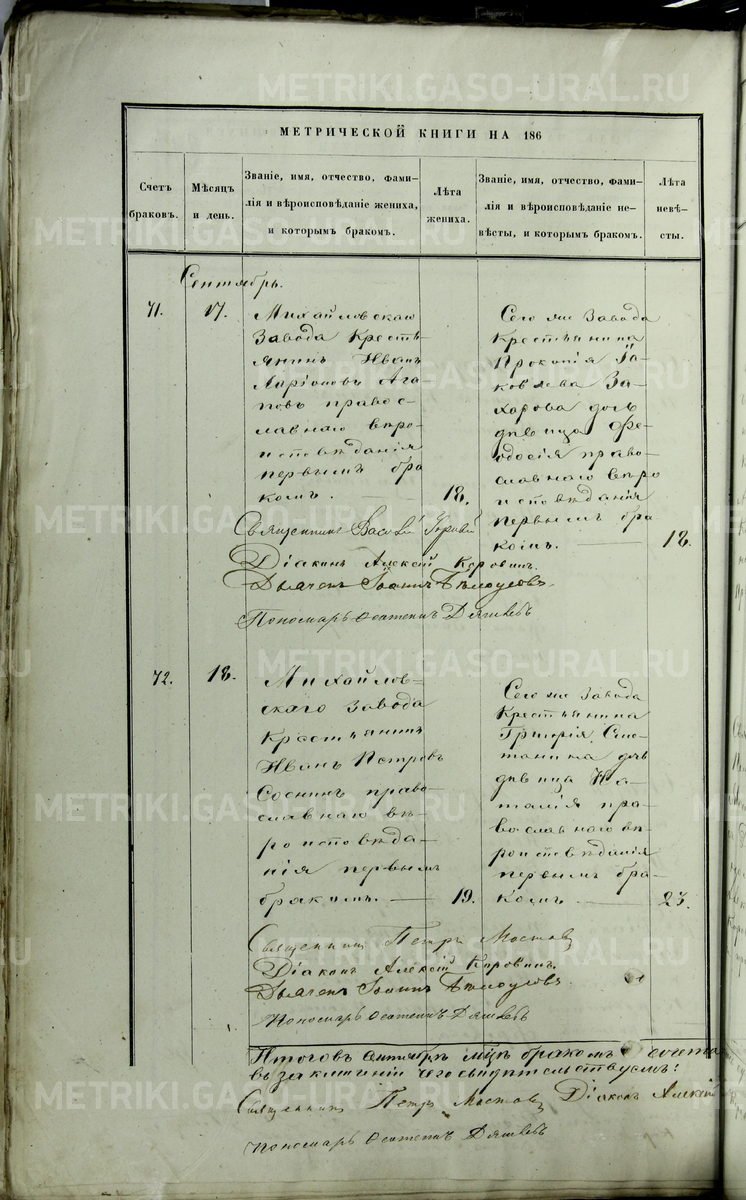 МЕТРИЧЕСКОЙ КНИГИ НА 186
Счетъ браковъ.
Мѣсяцъ и день.
Званіе, имя, отчество, фами-
лія и вѣроисповѣданіе жениха,
и которымъ бракомъ.
Лѣта жениха.
Званіе, имя, отчество, фами-
лія и вѣроисповѣданіе не-
вѣсты, и которымъ бракомъ.
Лѣта невѣ-
сты.
Сентябрь.
71.
17.
Михайловскаго
Завода Кресть-
янинъ Иванъ
Ларіоновъ Ага
повъ правос-
лавнаго вѣро
исповѣданія
первымъ бра
комъ.
18.
Сего же Завода
Крестьянина
Прокопія Іа-
ковлева За-
харова дочь
дѣвица Фе-
одосія право-
славнаго вѣро
исповѣданія
первымъ бра-
комъ.
18.
Священникъ
Діаконъ Алексій Коровинъ.
Дьячекъ Іоаннъ Бѣлоусовъ.
Пономарь
72.
18.
Михайлов-
скаго завода
Крестьянинъ
Иванъ Петровъ
Сосинъ право-
славнаго вѣ-
роисповѣда-
нія первымъ
бракомъ.
19.
Сего же Завода
Крестьянина
Григорія
дѣвица На-
талія пра-
вославнаго вѣ-
роисповѣданія
первымъ бра-
комъ
23.
Священникъ Петръ
Діаконъ Алексій Коровинъ.
Дьячекъ Іоаннъ Бѣлоусовъ
Пономарь
Итого въ Сентябрѣ м͠цѣ бракомъ сочета
въ заключеніи чего свидѣтельствуемъ:
Священникъ Петръ Діаконъ Алексій
Пономарь
METRIKI.GASO-URAL.RU